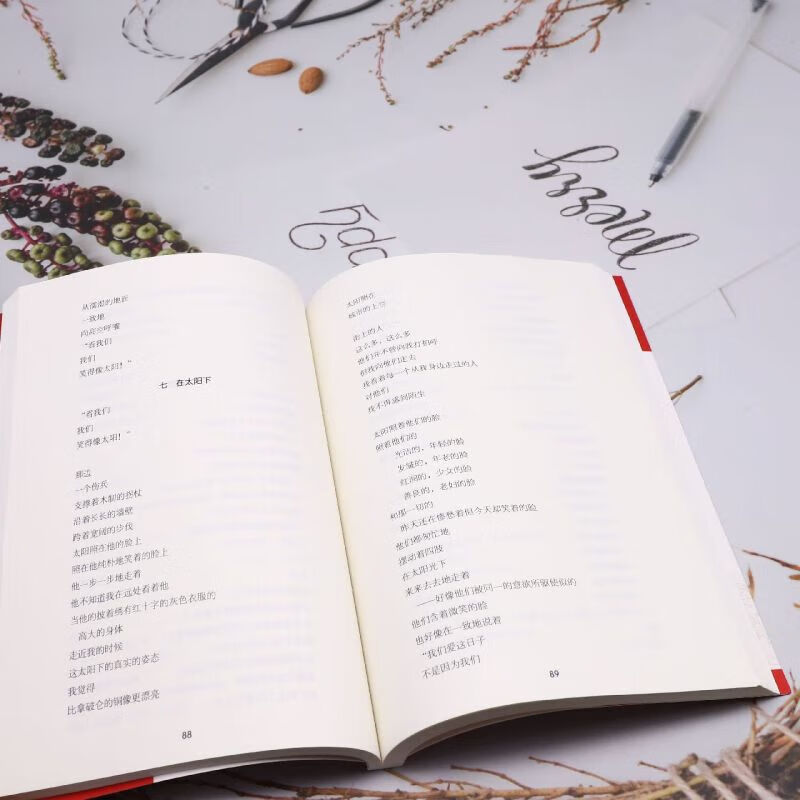 从濡湿的地面
一致地
向高空呼嚷
“看我们
我们
笑得像太阳！”
七 在太阳下
“看我们
我们
笑得像太阳！”
那边
一个伤兵
支撑着木制的拐杖
沿着长长的墙壁
跨着宽阔的步伐
太阳照在他的脸上
照在他纯朴地笑着的脸上
他一步一步地走着
他不知道我在远处看着他
当他的披着绣有红十字的灰色衣服的
高大的身体
走近我的时候
这太阳下的真实的姿态
我觉得
比拿破仑的铜像更漂亮
88
太阳照在
城市的上空
街上的人
这么多，这么多
他们并不曾向我打招呼
但我向他们走去
我看着每一个从我身边走过的人
对他们
我不再感到陌生
太阳照着他们的脸
照着他们的
光洁的，年轻的脸
发皱的，年老的脸
红润的，少女的脸
善良的，老妇的脸
和那一切的
昨天还在惨愁着但今天却笑着的脸
他们都匆忙地
摆动着四肢
在太阳光下
来来去去地走着
——好像他们被同一的意欲所驱使似的
他们含着微笑的脸
也好像在一致地说着
“我们爱这日子
不是因为我们
89